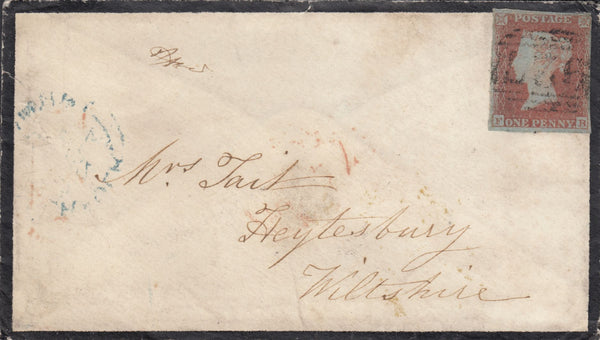 POSTAGE
ONE PENNY
Mrs Tait
Heytesbury
Wiltshire